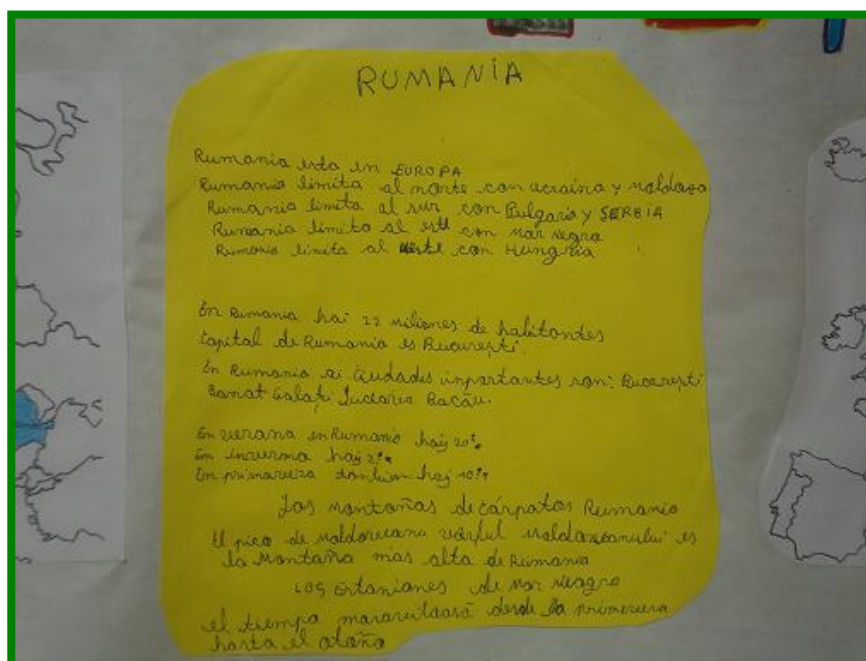 RUMANÍA
Rumania esta en EUROPA
Rumania limita al norte con ucraina y Moldavo
Rumania limita al sur con Bulgaria y SERBIA
Rumania limita al este con Mar Negro
Rumania limita al ueste con Hungria
En Rumania hai 22 miliones de habitantes
Capital de Rumania es Bucureşti.
En Rumania ai Ciudades inportantes son: Bucureşti
Banat Galaţi Suceava Bacău.
En verana en Rumania hay 20°.
En invierna hay 2°
En primavera tambien hay 10°
Los Montañas de Cárpatos Rumania
El pico de Moldoveanu varful Moldoveanului es
la Montaña mas alta de Rumania
LOS de Mar Neagra
el tiempo desde la primevera
hasta el otoño